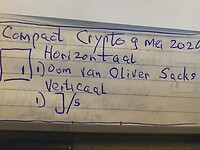 Compact Crypto 9 mei 202
Horizontaal
1) Oom van Oliver Sacks
Verticaal
1) ]/s